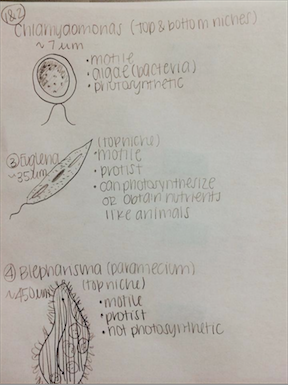 1&2
Chlamydomonas (top & bottom niches)
~7um
• motile
• algae (bacteria)
• photosynthetic
③ Euglena (top niche)
~35um
• motile
• protist
• can photosynthesize
or obtain nutrients
like animals
④ Blepharisma (paramecium)
~450um (top niche)
• motile
• protist
• not photosynthetic